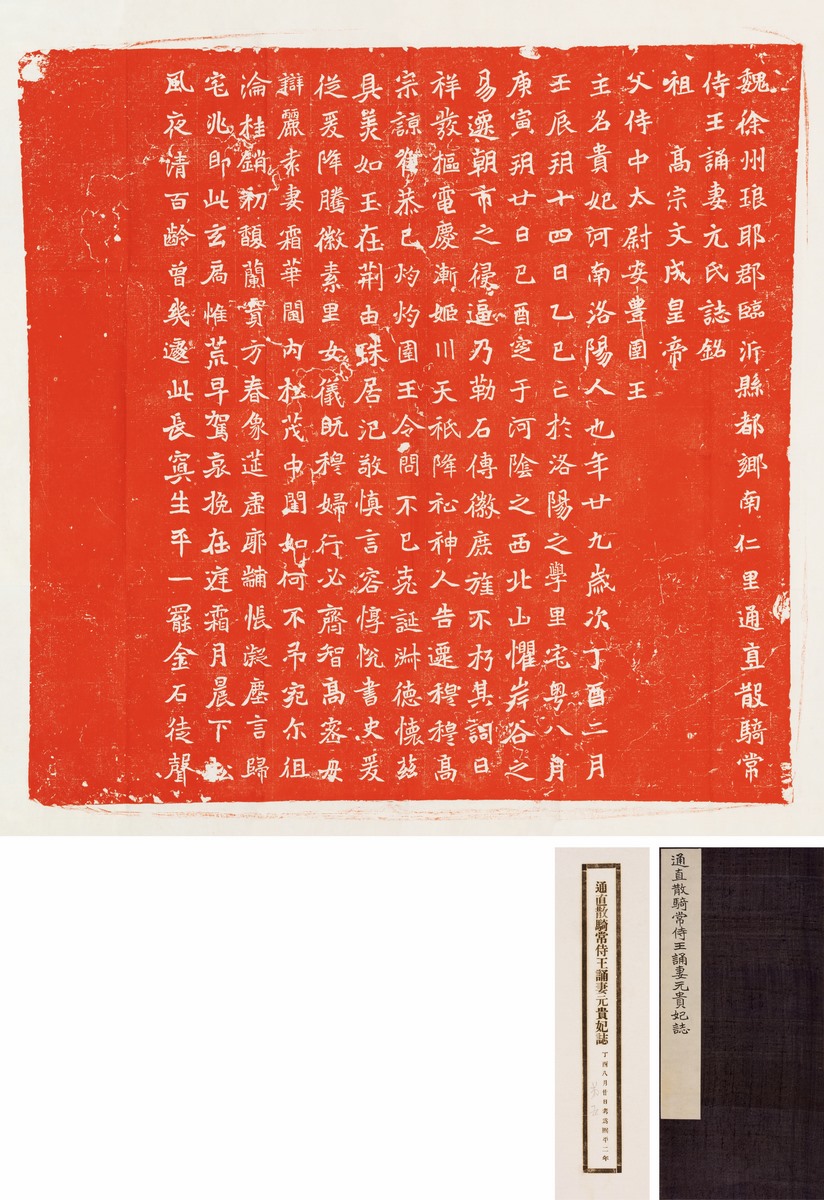 魏徐州琅耶郡臨沂縣都鄉南仁里通直散騎常
侍王誦妻元氏誌銘
祖高宗文成皇帝
父侍中太尉安豊圉王
主名貴妃河南洛陽人也年廿九歲次丁酉二月
壬辰玥十四日乙巳亡於洛陽之學里宅粤八月
庚寅玥廿日己酉窆于河陰之西北山懼岸谷之
易遷朝市之侵逼乃勒石傳徽庶旌不朽其詞曰
祥發樞電慶漸姬川天祇降祉神人告遷穆穆高
宗諒唯恭己灼灼圉王令問不已克誕淋德懷茲
具美如玉在荆由珠居汜敬慎言容惇悅書史爰
従爰降騰徽素里女儀旣穆婦行必齊智高密母
辯麗袁妻霜華閫内松茂中閨如何不吊宛尔徂
淪桂銷初馥蘭實方春象筵虛廓黼悵凝塵言歸
宅兆卽此玄扃惟荒早駕哀挽在庭霜月晨下松
風夜清百齡曾幾邈此長寘生平一罷金石徒聲
通直散騎常侍王誦妻元貴妃誌
丁酉八月廿日考為熙平二年
通直散騎常侍王誦妻元貴妃誌